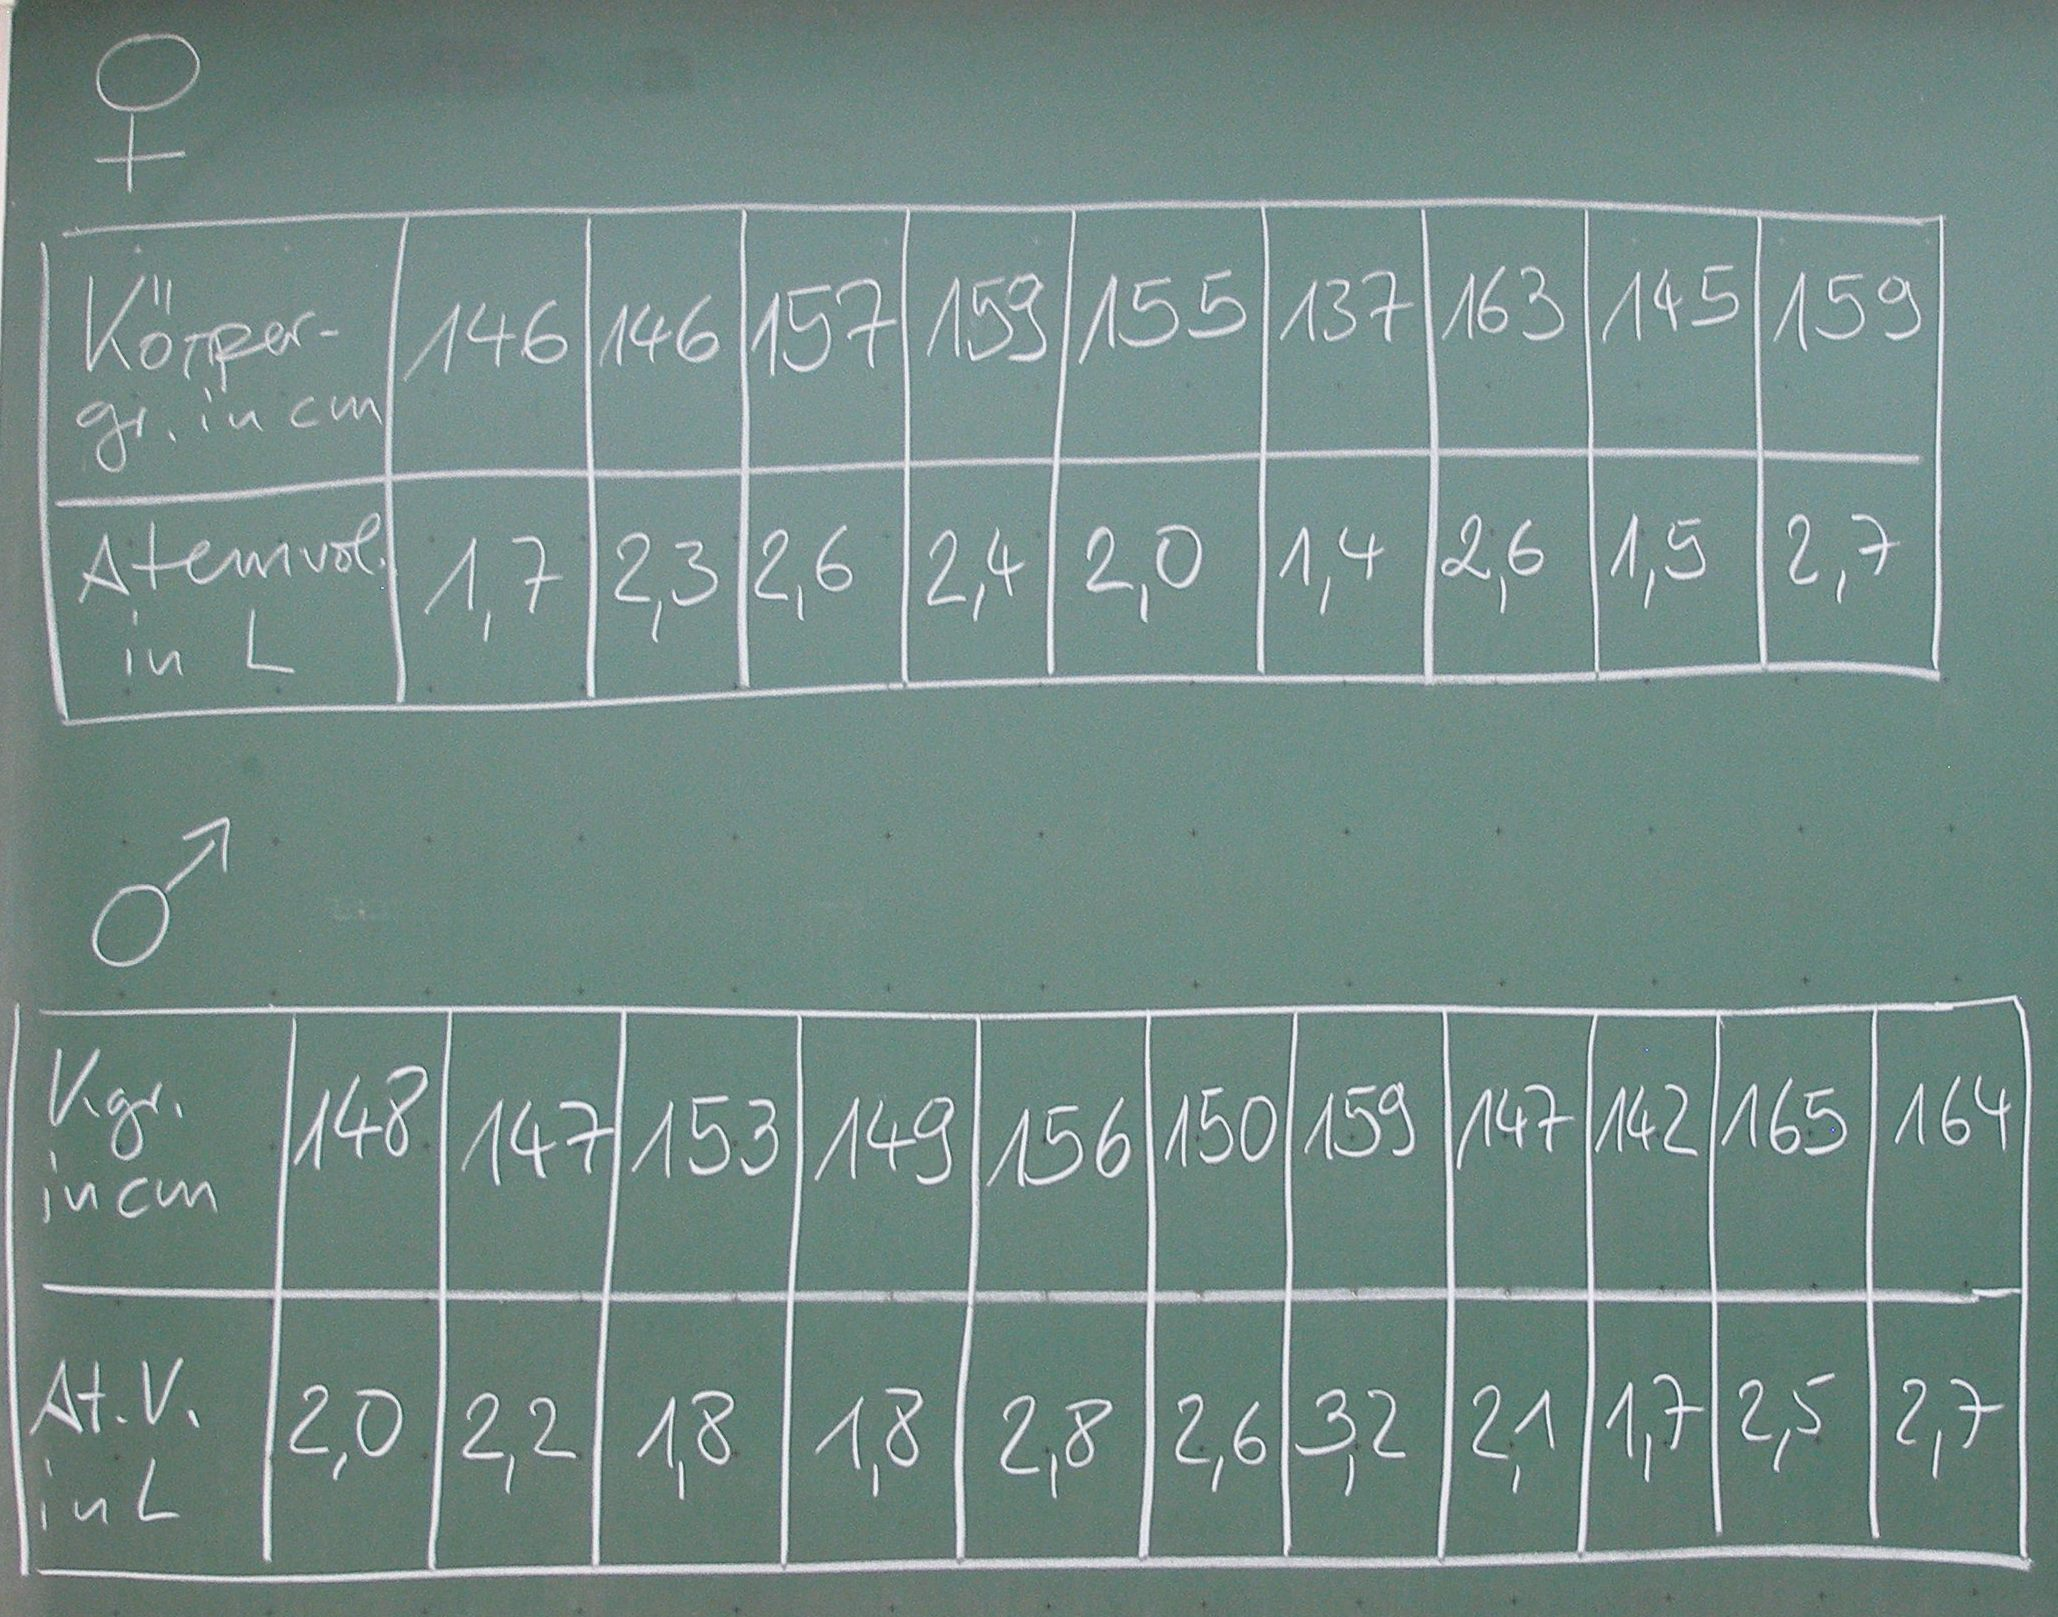 ♀
Körper-
gr. in cm 146 146 157 159 155 137 163 145 159
Atemvol.
in L 1,7 2,3 2,6 2,4 2,0 1,4 2,6 1,5 2,7
♂
Kgr.
in cm 148 147 153 149 156 150 159 147 142 165 164
At.V.
in L 2,0 2,2 1,8 1,8 2,8 2,6 3,2 2,1 1,7 2,5 2,7